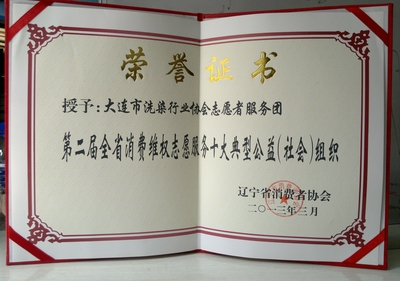 荣誉证书
授予:大连市洗染行业协会志愿者服务团
第二届全省消费维权志愿服务十大典型公益(社会)组织
辽宁省消费者协会
二〇一三年三月